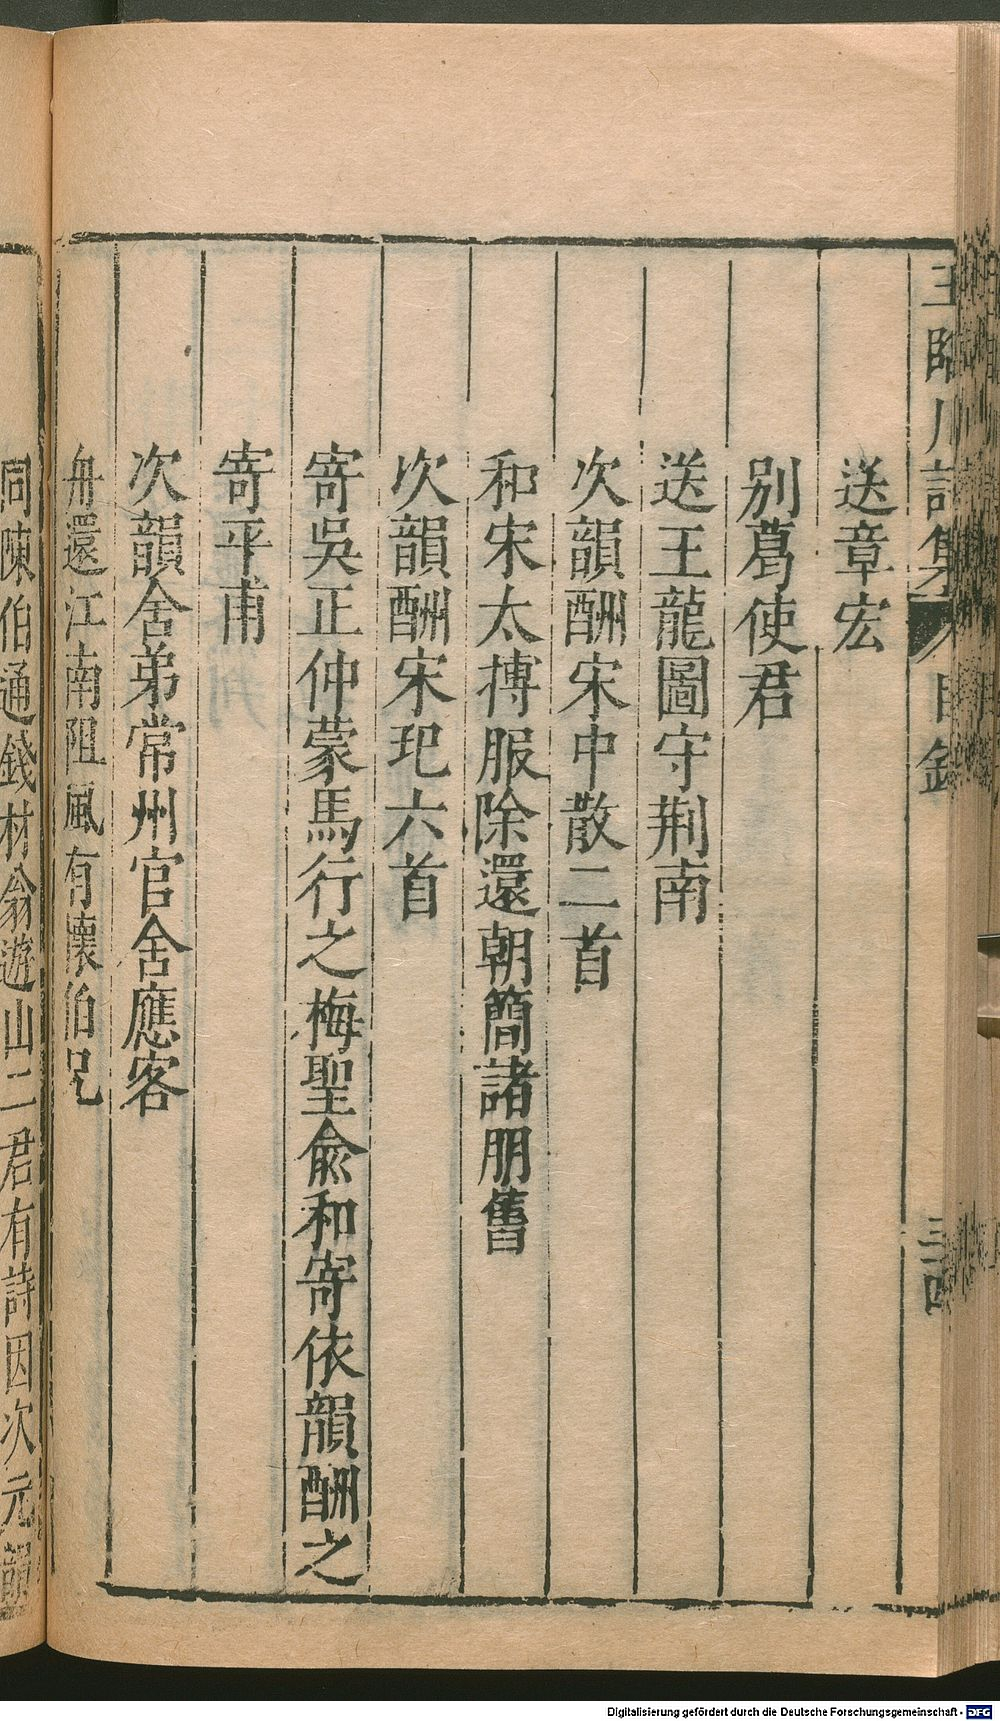 王臨川詩集 目錄 三四
送章宏
別葛使君
送王龍圖守荆南
次韻酬宋中散二首
和宋太博服除還朝簡諸朋舊
次韻酬宋玘六首
寄吳正仲蒙馬行之梅聖俞和寄依韻酬之
寄平甫
次韻舍弟常州官舍應客
舟還江南阻風有懷伯兄
同陳伯通錢材翁遊山二君有詩因次元韻
Digitalisierung gefördert durch die Deutsche Forschungsgemeinschaft - DFG